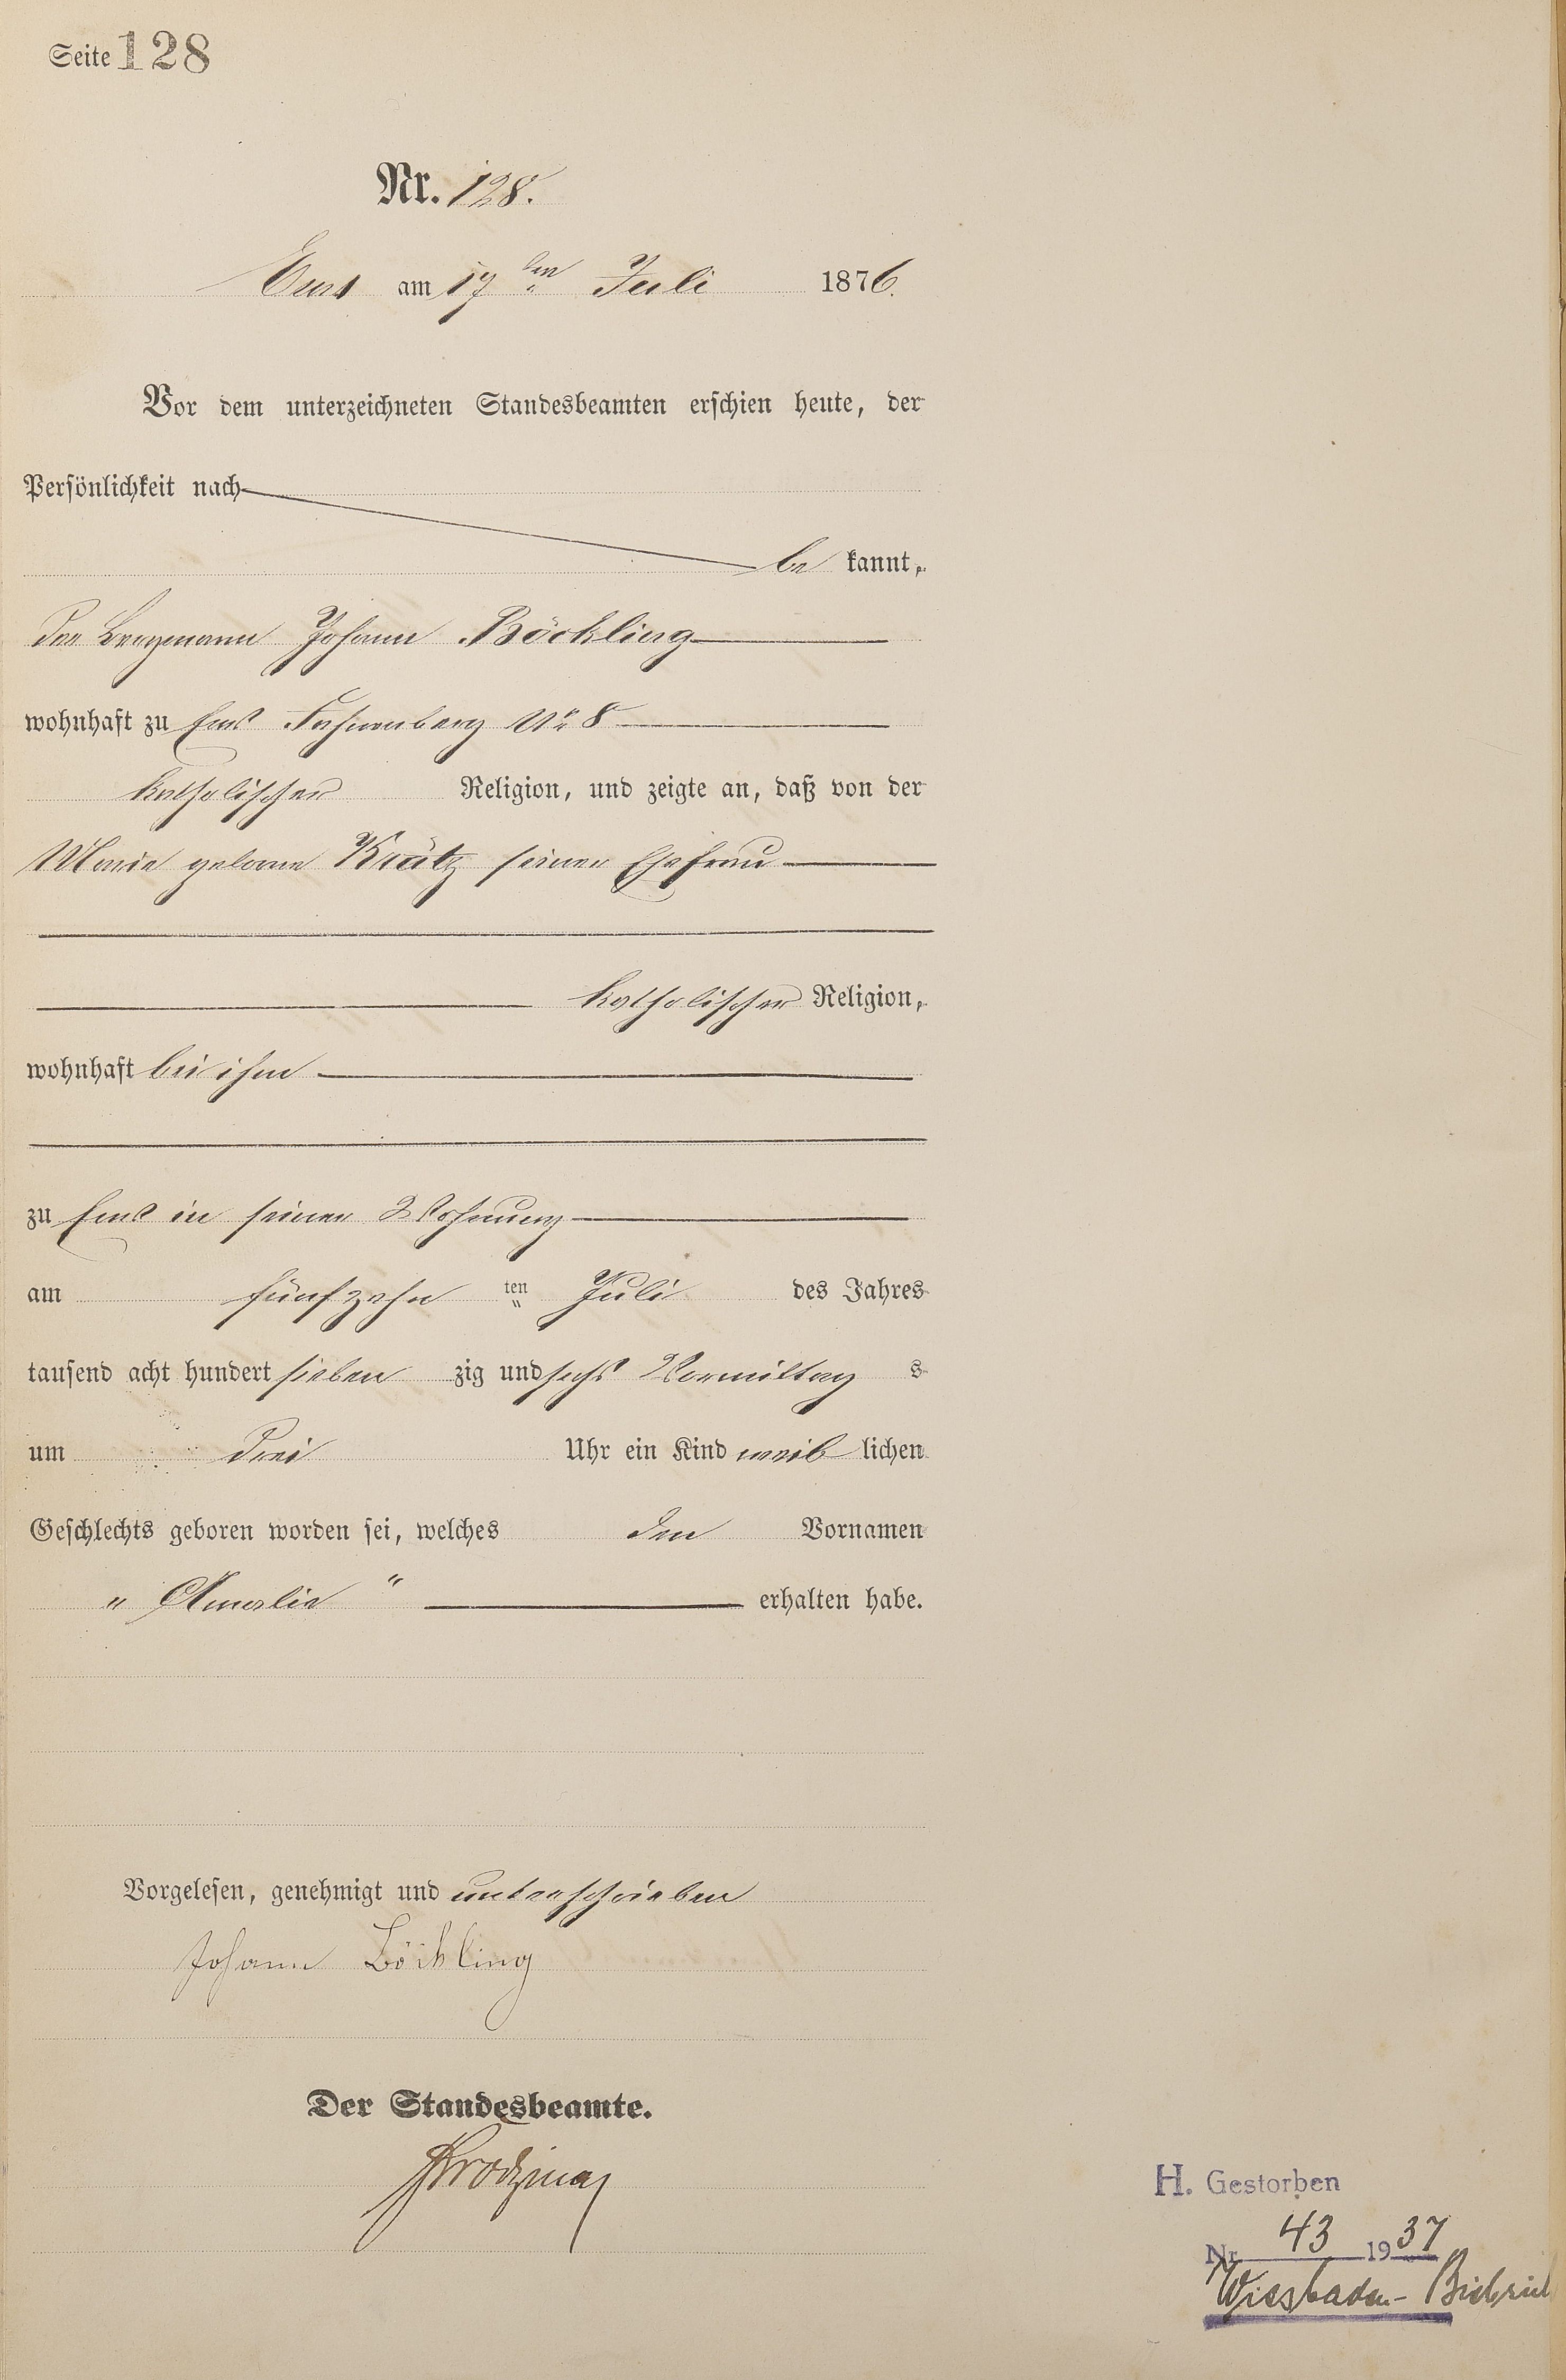 Seite 128
Nr. 128.
Ems am 17ten Juli 1876.
Vor dem unterzeichneten Standesbeamten erschien heute, der
Persönlichkeit nach
be kannt,
der Bergmann Johann Böckling
wohnhaft zu Ems Fahnenberg No 8
katholischer Religion, und zeigte an, daß von der
Maria geborne Krätz seiner Ehefrau
katholischer Religion,
wohnhaft bei ihm
zu Ems in seiner Wohnung
am fünfzehn ten Juli des Jahres
tausend acht hundert sieben zig und sechs Vormittag s
um drei Uhr ein Kind weib lichen
Geschlechts geboren worden sei, welches den Vornamen
„ Amalie “ erhalten habe.
Vorgelesen, genehmigt und unterschrieben
Johann Böckling
Der Standesbeamte.
H. Gestorben
Nr. 43 1937
Wiesbaden-Biebrich